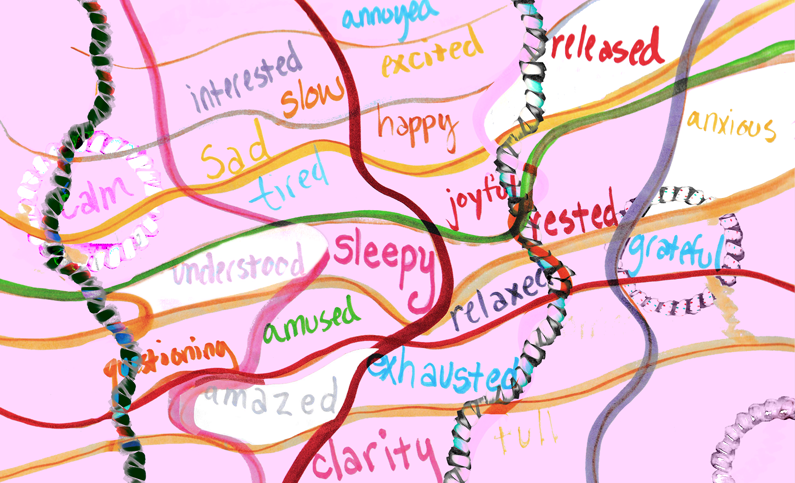 annoyed
excited
released
interested
slow
happy
anxious
sad
tired
calm
joyful
rested
understood
sleepy
grateful
relaxed
amused
questioning
exhausted
amazed
full
clarity